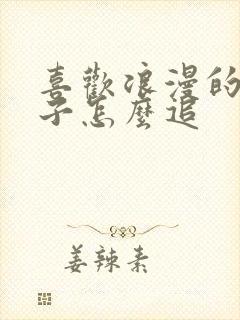 喜歡浪漫的
子怎麼追
姜辣素